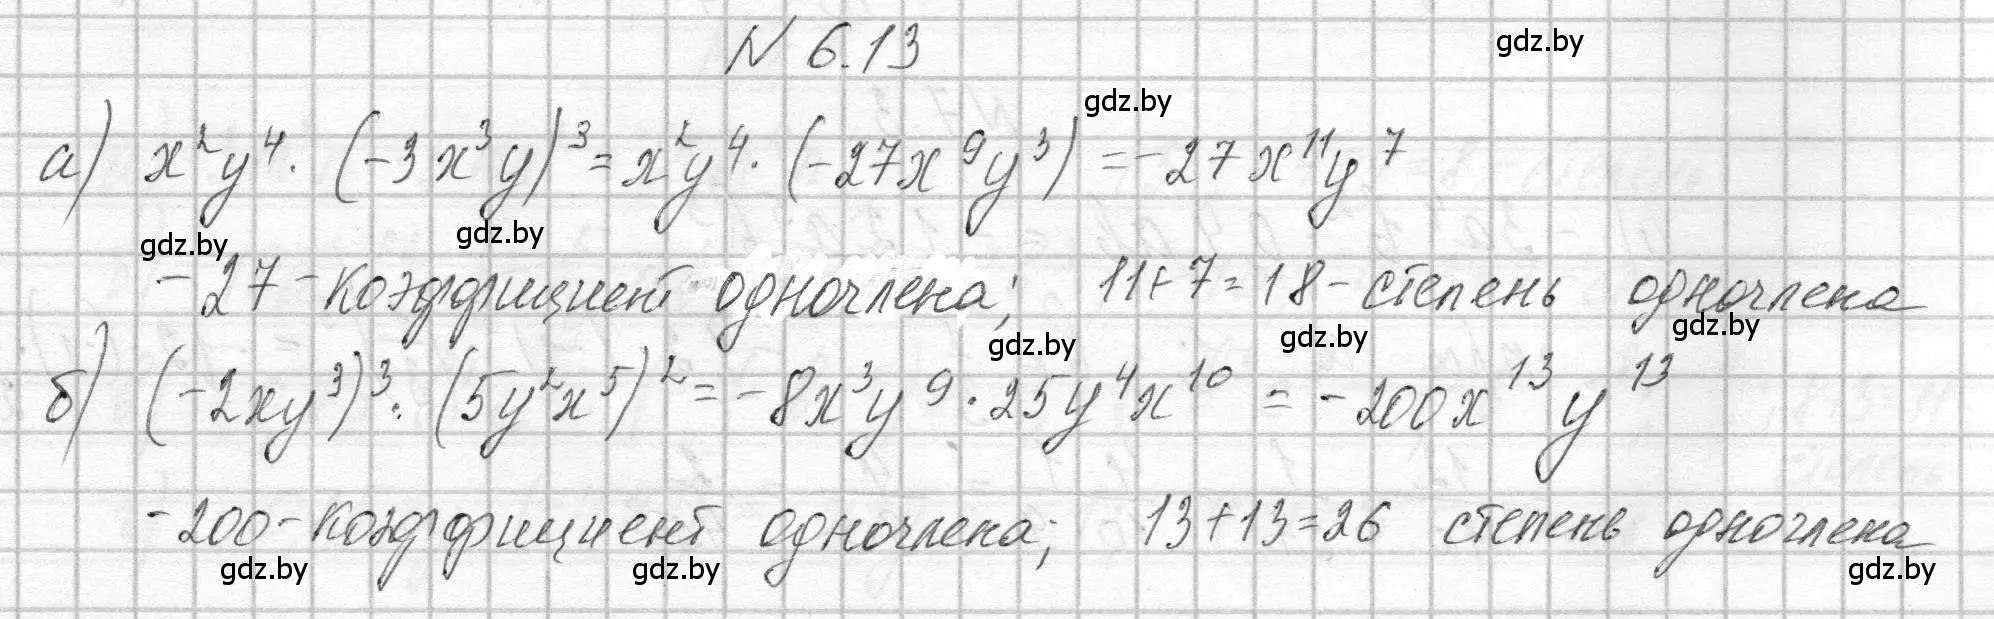 N 6.13
gdz.by
gdz.by
а) x²y⁴ · (-3x³y)³ = x²y⁴ · (-27x⁹y³) = -27x¹¹y⁷
gdz.by
gdz.by
-27 - коэффициент одночлена; 11+7=18 - степень одночлена
gdz.by
gdz.by
gdz.by
б) (-2xy³)³ · (5y²x⁵)² = -8x³y⁹ · 25y⁴x¹⁰ = -200x¹³y¹³
-200 - коэффициент одночлена; 13+13=26 степень одночлена
gdz.by
gdz.by
gdz.by